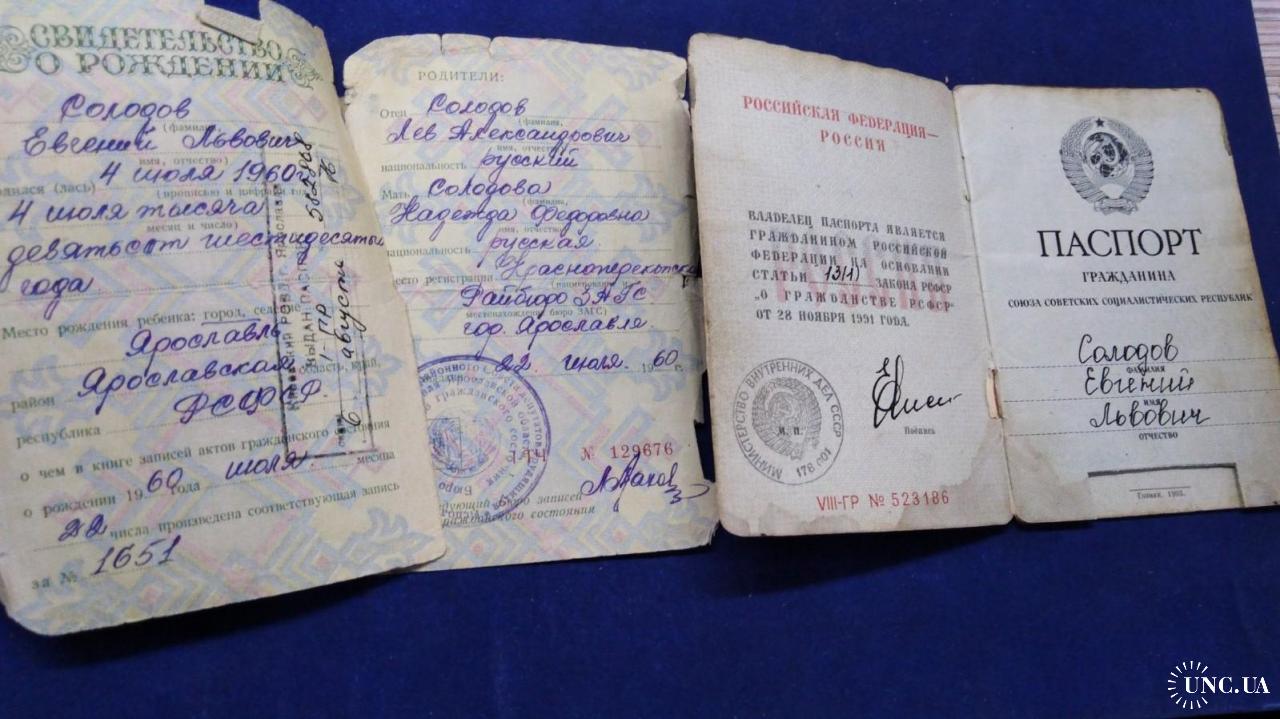 СВИДЕТЕЛЬСТВО
О РОЖДЕНИИ
Солодов
(фамилия,
Евгений Львович
имя, отчество)
4 июля 1960г
родился (лась) (прописью и цифрами год,
4 июля тысяча
месяц и число)
девятьсот шестидесятый
года
Место рождения ребенка: город, селение
Ярославль
район Ярославская область, край,
республика РСФСР
о чем в книге записей актов гражданского состояния
о рождении 1960 года июля месяца
22 числа произведена соответствующая запись
за № 1651
ВЫДАН ПАСПОРТ
1-ГР 582808
6 августа 76
РОДИТЕЛИ:
Отец Солодов
(фамилия,
Лев Александрович
имя, отчество)
национальность русский
Мать Солодова
(фамилия,
Надежда Федоровна
имя, отчество)
национальность русская
Место регистрации Красноперекопское
(наименование и
Райбюро ЗАГС
местонахождение бюро ЗАГС)
гор. Ярославля.
22 июля 1960 г.
№ 129676
Заведующий бюро записей
актов гражданского состояния
РОССИЙСКАЯ ФЕДЕРАЦИЯ—
РОССИЯ
ВЛАДЕЛЕЦ ПАСПОРТА ЯВЛЯЕТСЯ
ГРАЖДАНИНОМ РОССИЙСКОЙ
ФЕДЕРАЦИИ НА ОСНОВАНИИ
СТАТЬИ 13(1) ЗАКОНА РСФСР
"О ГРАЖДАНСТВЕ РСФСР"
ОТ 28 НОЯБРЯ 1991 ГОДА.
МИНИСТЕРСТВО ВНУТРЕННИХ ДЕЛ СССР
М. П.
Подпись
VIII-ГР № 523186
ПАСПОРТ
ГРАЖДАНИНА
СОЮЗА СОВЕТСКИХ СОЦИАЛИСТИЧЕСКИХ РЕСПУБЛИК
Солодов
ФАМИЛИЯ
Евгений
ИМЯ
Львович
ОТЧЕСТВО
UNC.UA